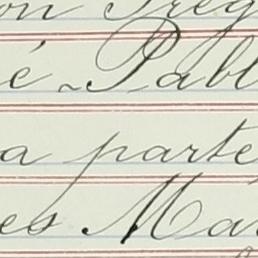 on Greg
é Pabl
a parte
es Mar